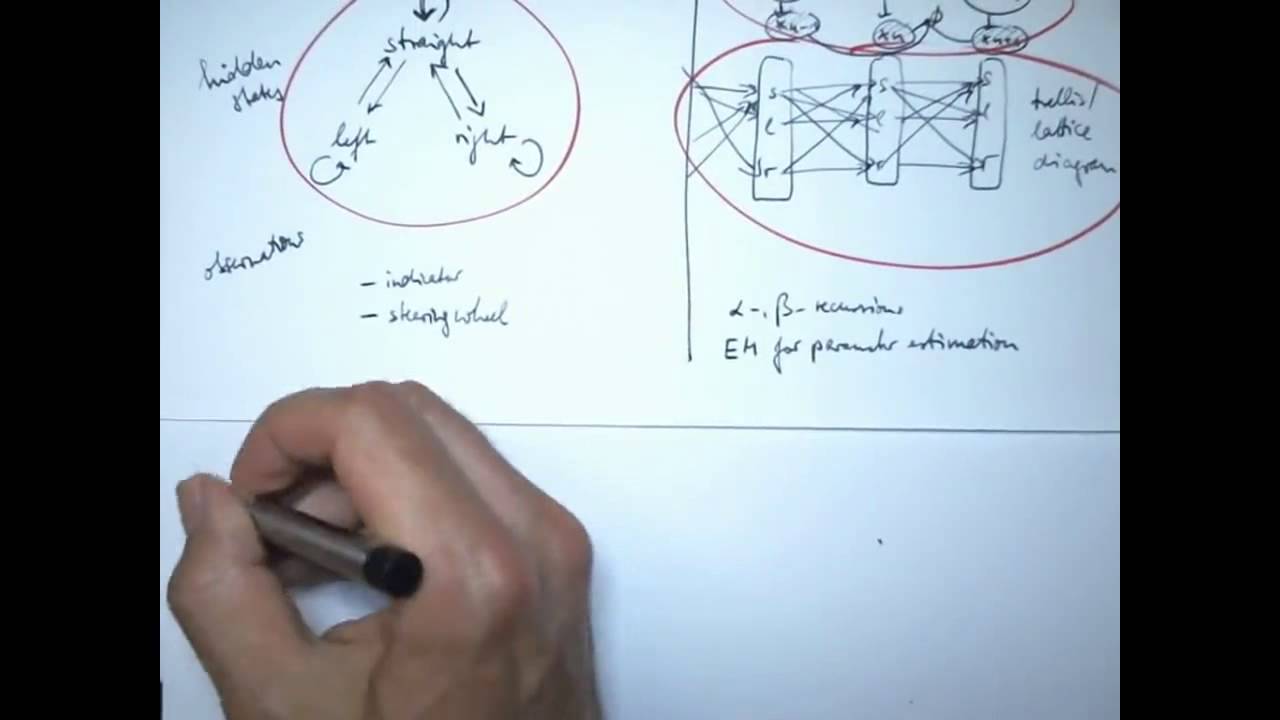 hidden
states
straight
left
right
observations
- indicator
- steering wheel
xn-1
xn
xn+1
s
l
r
s
l
r
s
l
r
trellis/
lattice
diagram
α-, β- recursions
EM for parameter estimation